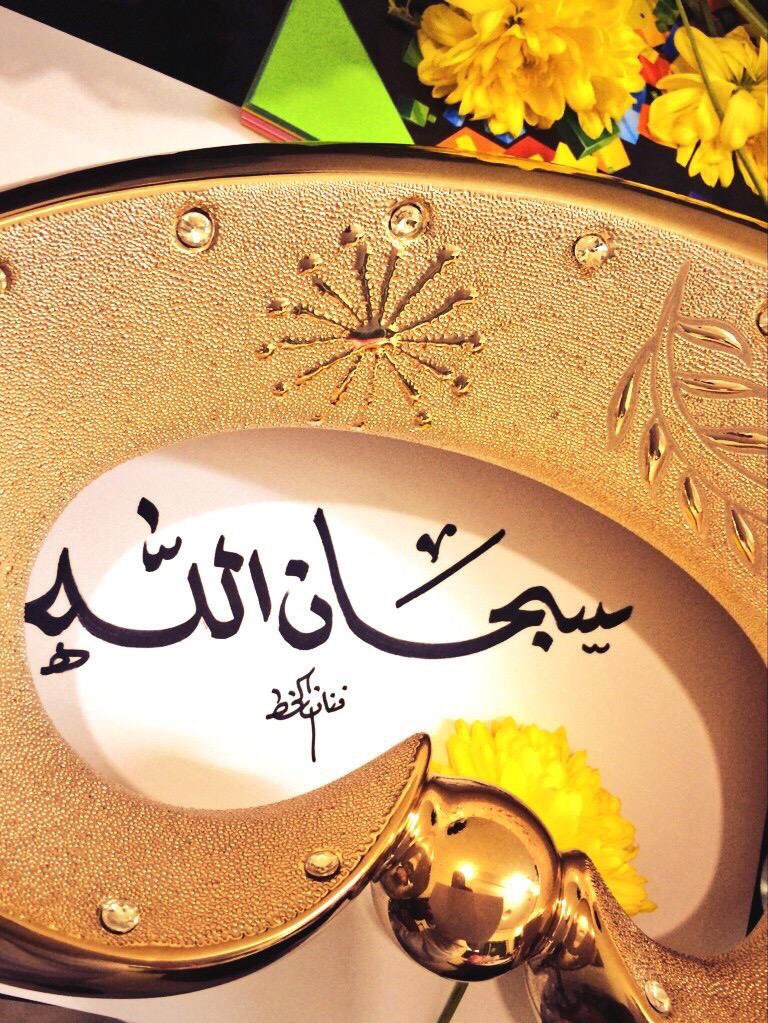 سبحان الله
فنان الخط